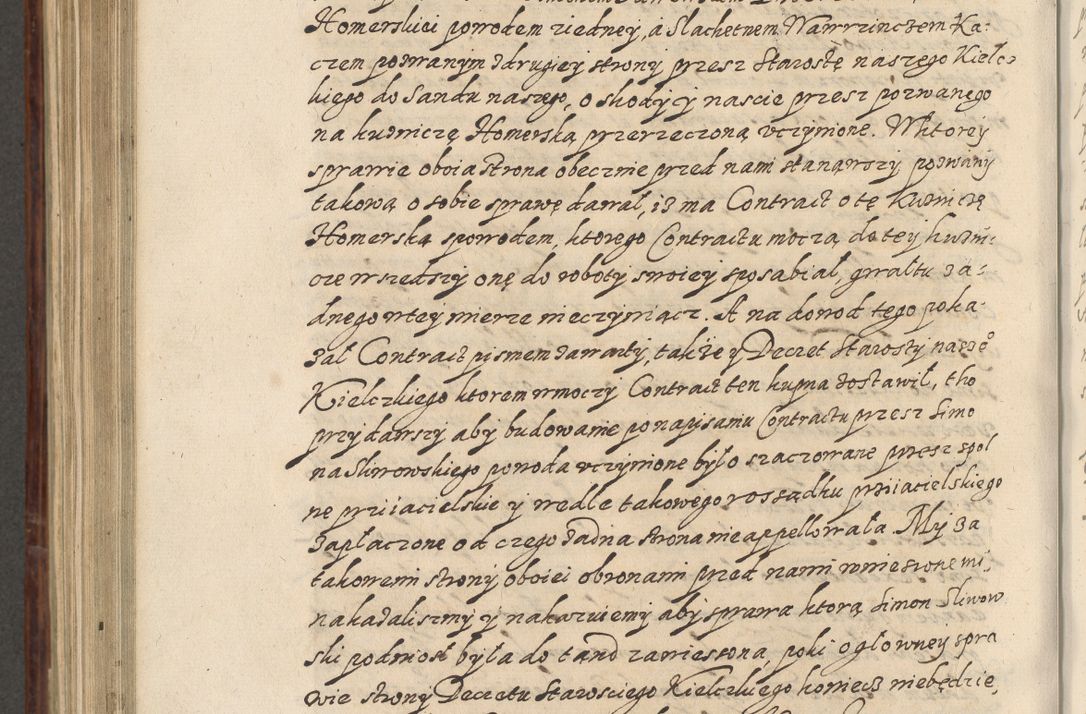 Homerskiei powodem ziedney, á Slachetnem Wawrzinczem Ka-
czem pozwanym zdrugiey strony przesz Starostę naszego Kielcz
kiego do Sandu naszego, o skody y nascie przesz pozwanego
na kuzniczę Homerską przerzeczoną vczynione. Wktorey
sprawie oboia strona obecznie przed nami stanąwszy pozwany
takową o sobie sprawę dawał, iz ma Contract o tę Kuznicę
Homerską spowodem, ktorego Contractu moczą do tey kuzni-
cze wszedszy onę do roboty swoiey sposabiał, gwałtu za-
dnego wtey mierze nieczyniącz. A na dowod tego poka-
zał Contract pismem zawarty, także y Decret Starosty nasze°
Kielczkiego ktorem wmoczy Contract ten kupna zostawił, tho
przydawszy aby budowanie po napisaniu Contractu przesz Simo
na Sliwowskiego powoda vczynione było szaczowane przesz spol
ne prziiacielskie y wedle takowego rossadku prziiacielskiego
zapłaczone od czego zadna strona nie appellowała. My za
takowemi strony oboiei obronami przed nami wniesionemi,
nakazaliszmy y nakazuiemy aby sprawa ktorą Simon Sliwow
ski podniosł była do tand zawieszona, poki o głowney spra
wie strony Decretu Starosciego Kielczkiego koniecz niebędzie,